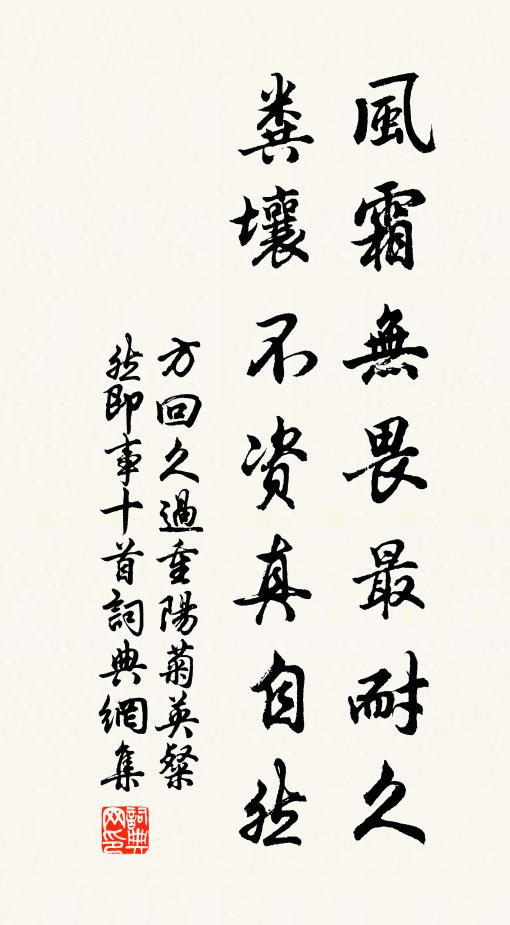 風霜無畏最耐久
糞壤不資真自然
方回久過重陽菊英粲
然即事十首詞典網集
詞典網印